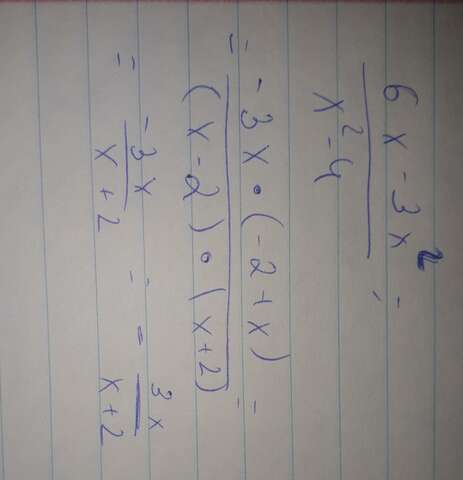 6x - 3x² =
x² - 4
= -3x · (-2 + x) =
(x - 2) · (x + 2)
= -3x = 3x
x + 2 x + 2